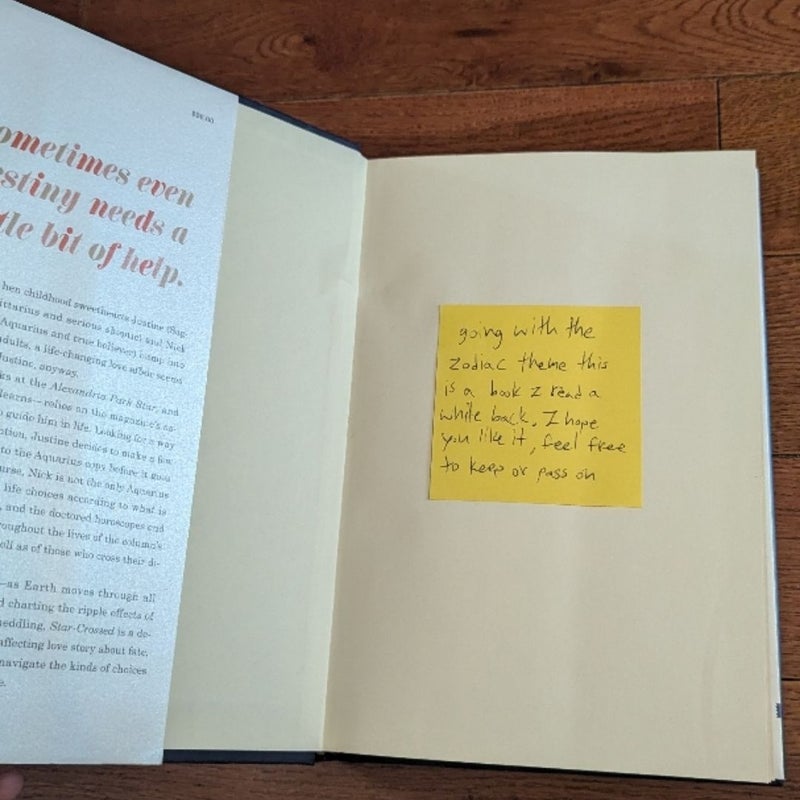 $26.00
ometimes even
estiny needs a
tle bit of help.
hen childhood sweethearts Justine (Sag-
ittarius and serious skeptic) and Nick
Aquarius and true believer) bump into
adults, a life-changing love affair seems
Justine, anyway.
ks at the Alexandria Park Star, and
learns—relies on the magazine's as-
o guide him in life. Looking for a way
ption, Justine decides to make a few
to the Aquarius copy before it goes
urse, Nick is not the only Aquarius
life choices according to what is
, and the doctored horoscopes end
roughout the lives of the column's
ell as of those who cross their di-
—as Earth moves through all
d charting the ripple effects of
meddling, Star-Crossed is a de-
affecting love story about fate,
navigate the kinds of choices
e.
going with the
zodiac theme this
is a book I read a
while back. I hope
you like it, feel free
to keep or pass on